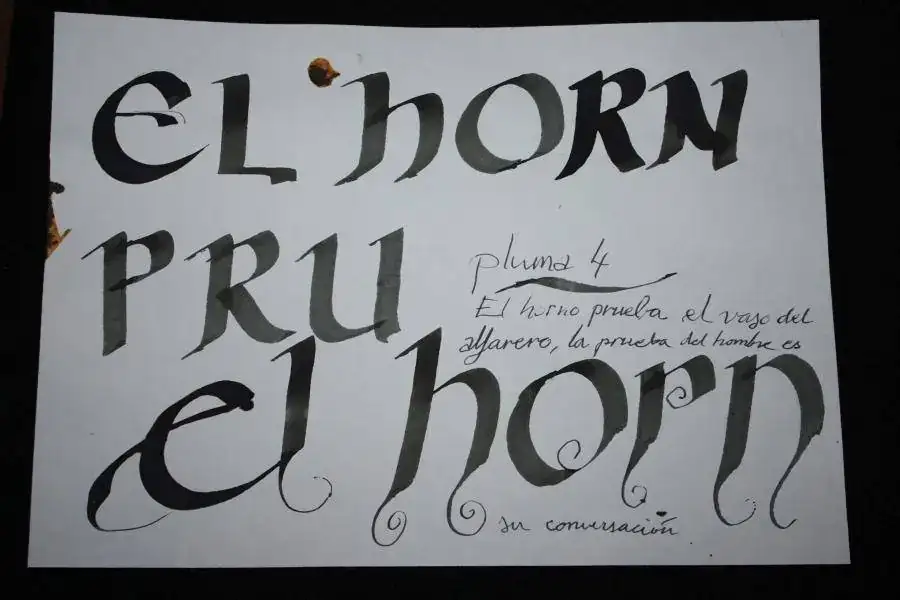 EL hORN
PRU
pluma 4
El horno prueba el vaso del
alfarero, la prueba del hombre es
el horn
su conversación